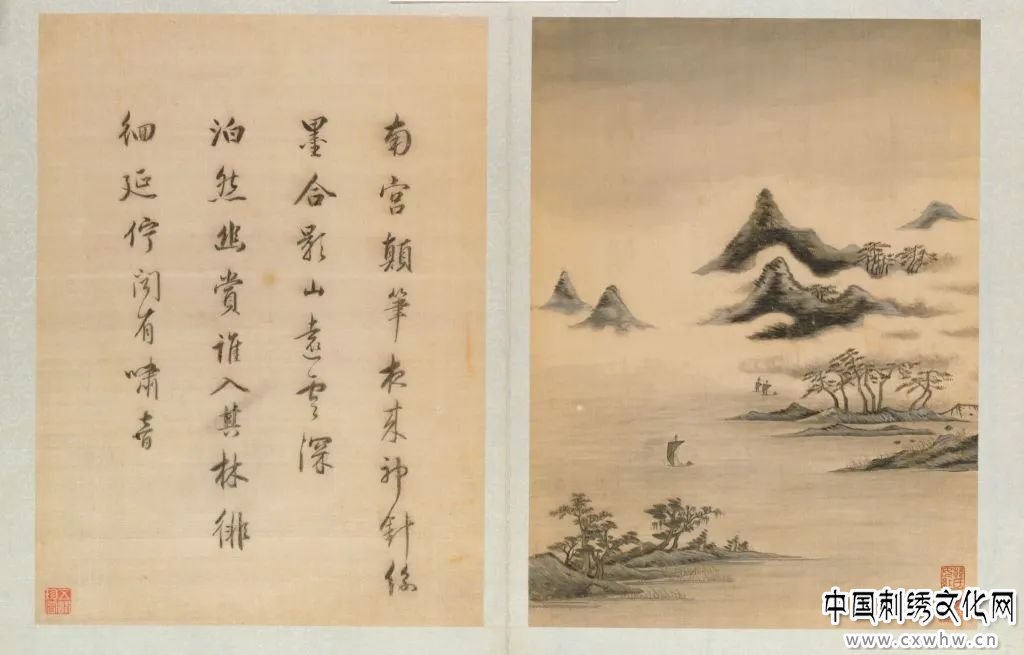 南宫颠笔夜来神针丝
墨合影山远云深
泊然幽赏谁入其林徘
徊延伫闻有啸音
中国刺绣文化网
www.cxwhw.cn